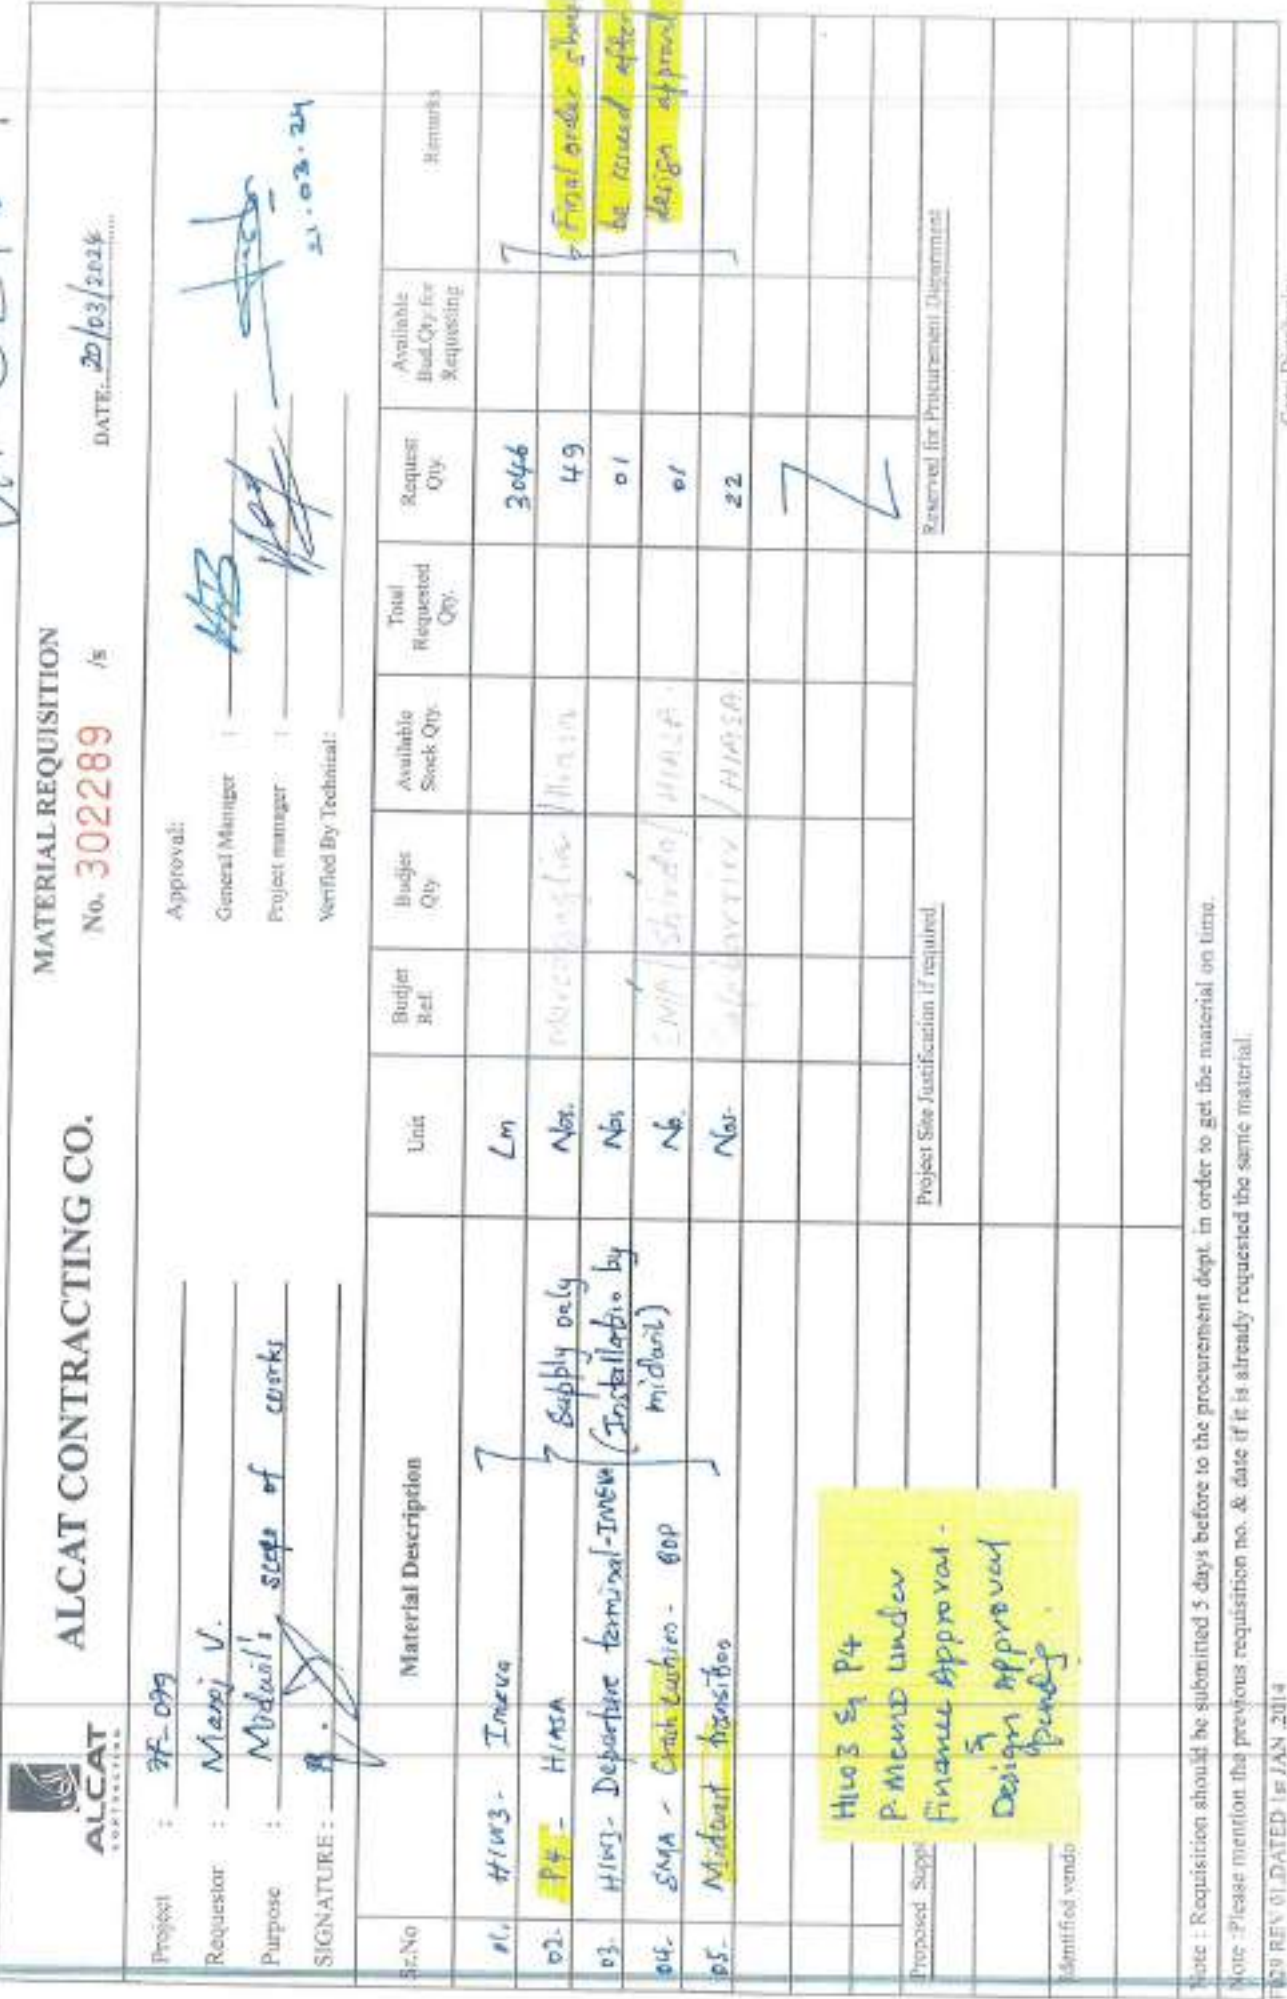 ALCAT
CONTRACTING
ALCAT CONTRACTING CO.
MATERIAL REQUISITION
No. 302289 /s
DATE: 20/03/2024
Project :
Requestor : Manoj V.
Purpose : Midwil's scope of works
SIGNATURE :
Approval:
General Manager :
Project manager :
Verified By Technical:
21.03.24
Sr.No
Material Description
Unit
Budjet Ref.
Budjet Qty
Available Stock Qty.
Total Requested Qty.
Request Qty.
Available Bud.Qty.for Requesting
Remarks
01. HIW3 - Lm 3046
02. P4 - HIASA Nos. 49
03. HIW3 - Departure terminal - Nos 01
04. SMA - Crash Cushion - No. 01
05. Midwest transition Nos. 22
Supply only
(Installation by
Final order
be issued after
design approval
SMA / / HIASA
/ HIASA
HIW3 & P4
P. Memo under
Finance Approval -
&
Design Approval
Pending.
Proposed Suppl
Identified vendo
Project Site Justification if required
Reserved for Procurement Department
Note : Requisition should be submitted 5 days before to the procurement dept. in order to get the material on time.
Note :Please mention the previous requisition no. & date if it is already requested the same material.
F029 REV 01.DATED 1st JAN 2014